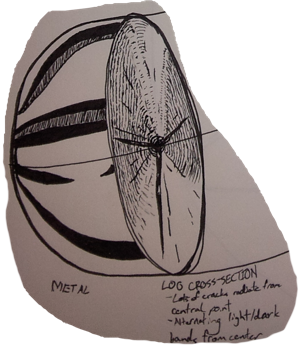 METAL
LOG CROSS-SECTION
-Lots of cracks radiate from
central point
-Alternating light/dark
bands from center